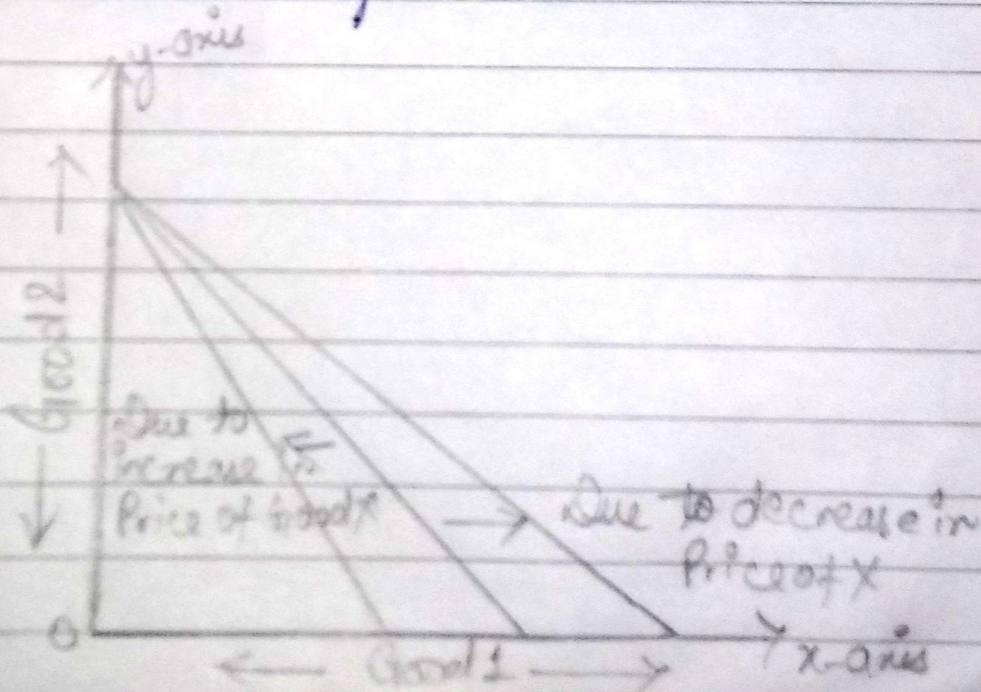 y-axis
Good 2
Due to
increase in
Price of Good X
Due to decrease in
Price of X
O
Good 1
x-axis